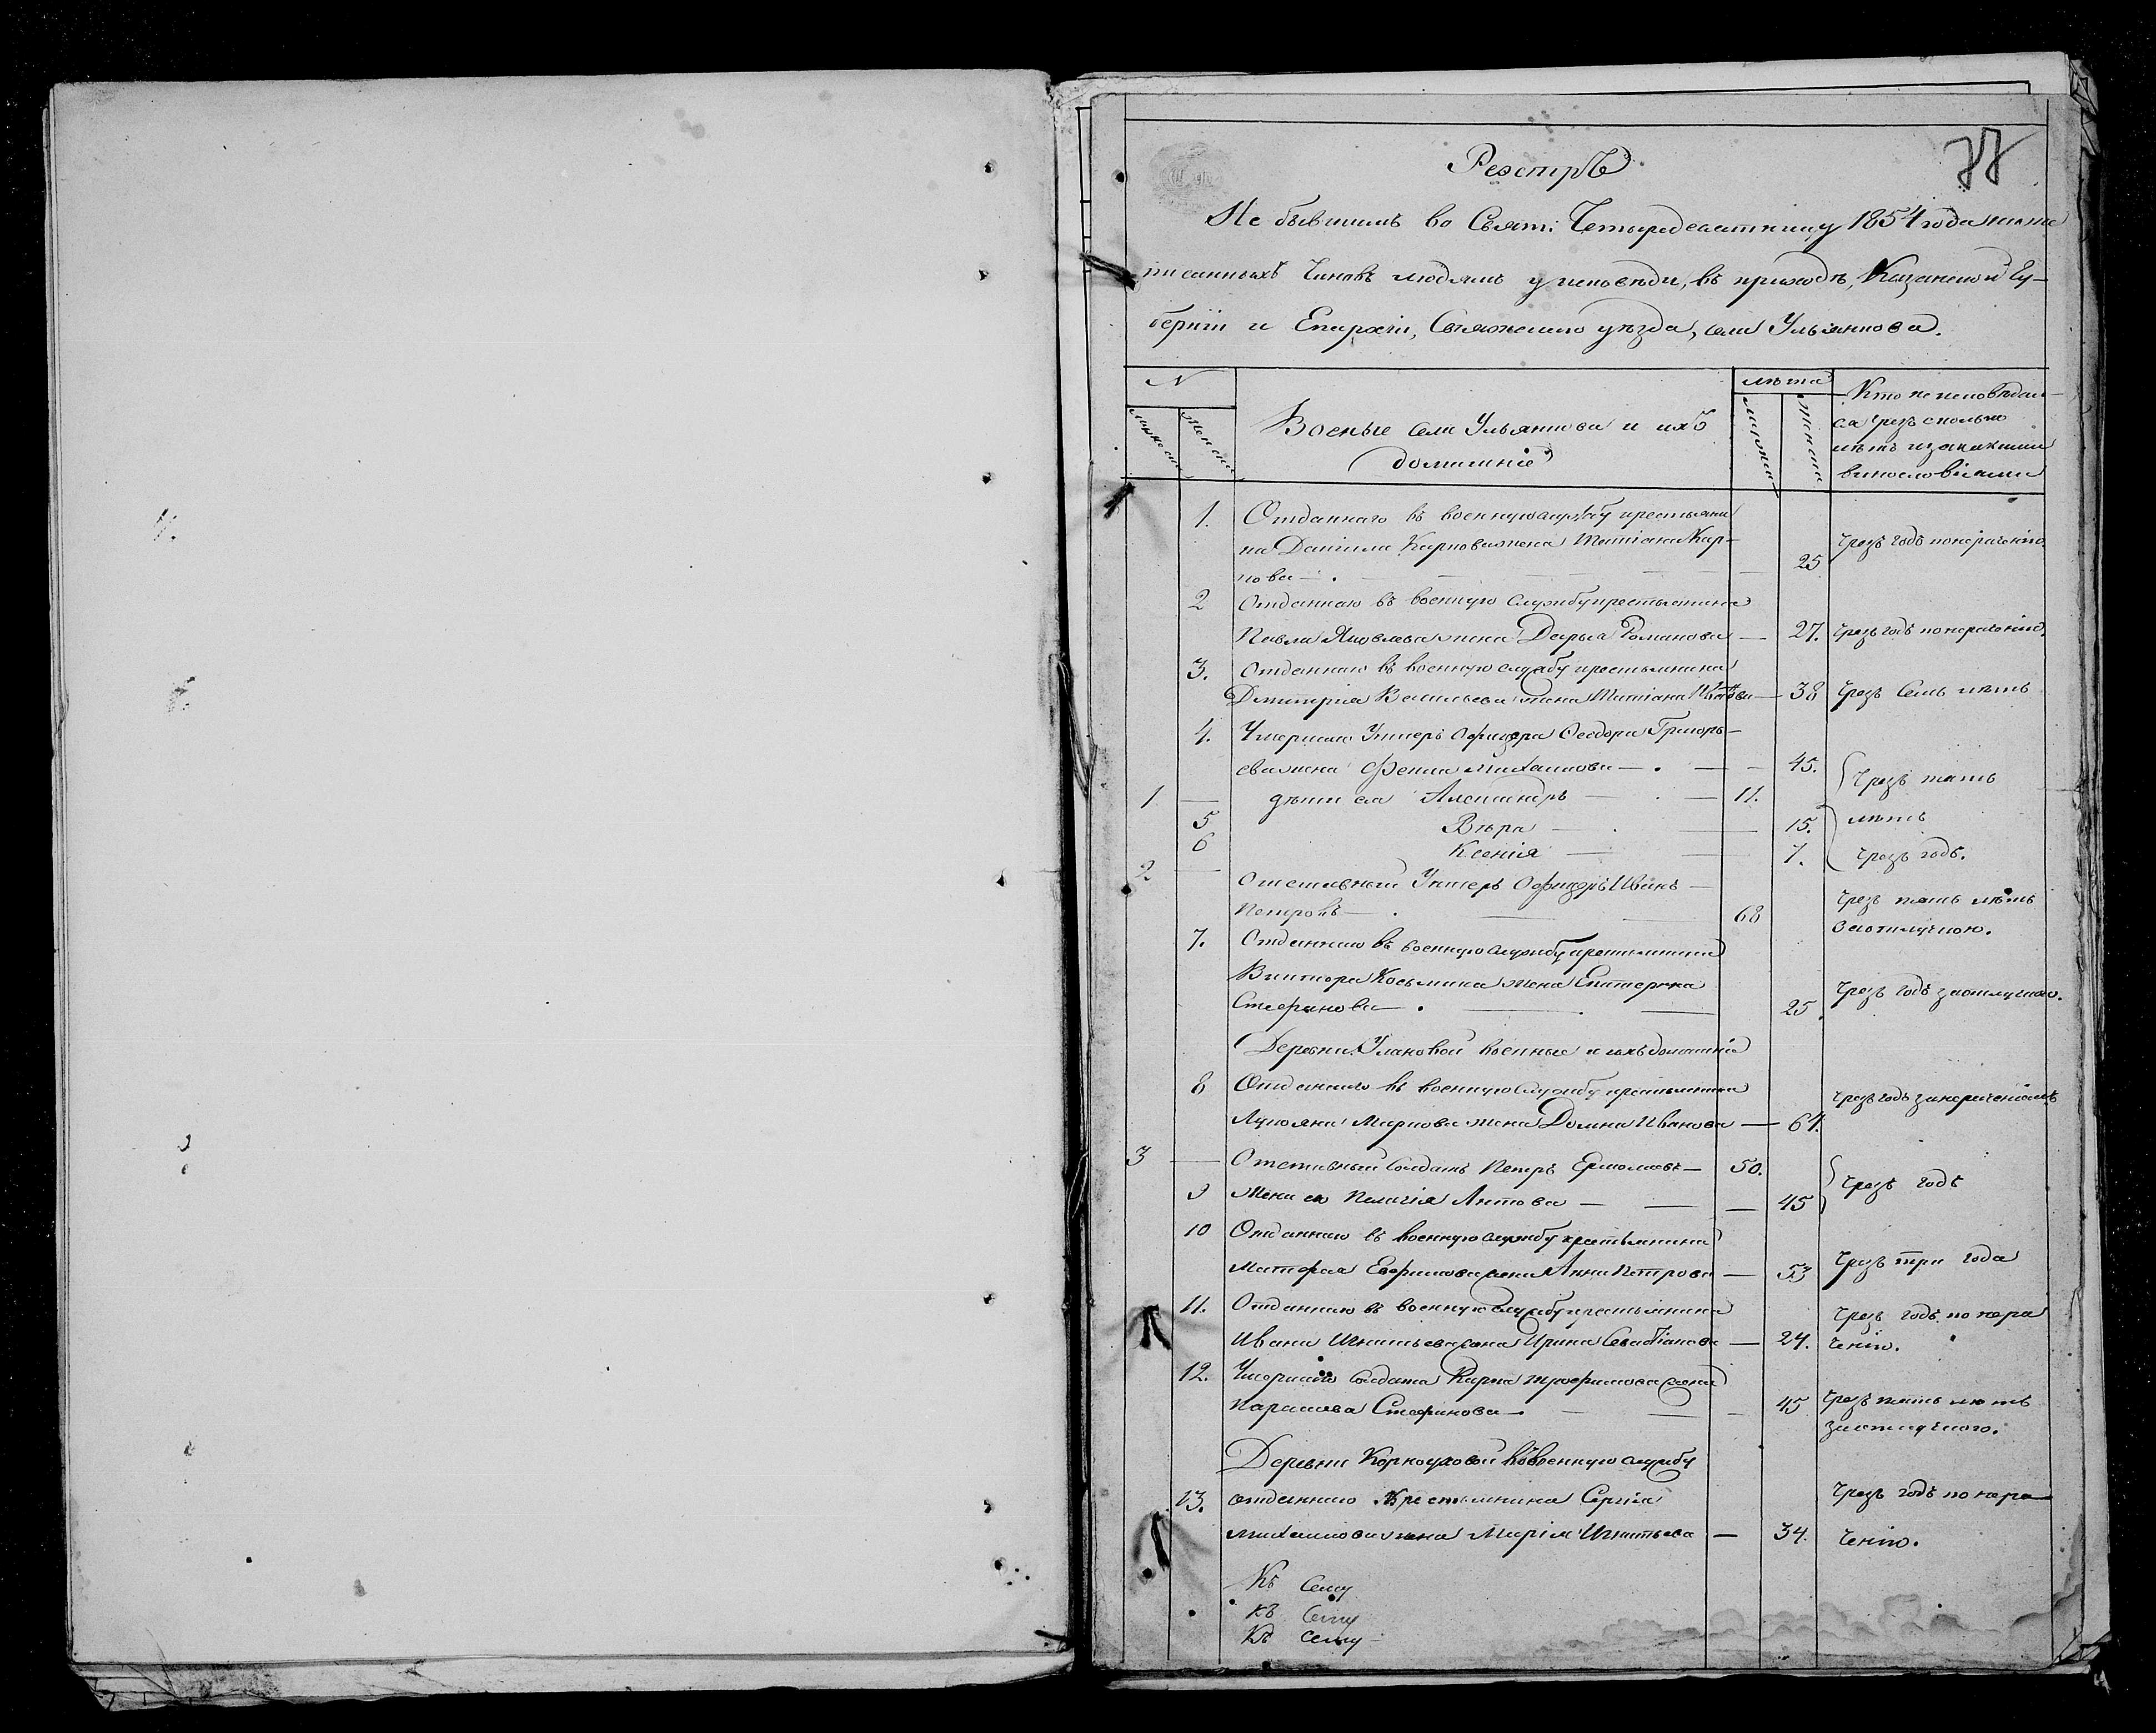 Реэстръ
Не бывшимъ во Свят: Четыредесятницу 1854 года ниже
писанныхъ Чиновъ людямъ у исповѣди, въ приходѣ, Казанской Гу-
берніи и Епархіи, Свіяжскаго уѣзда, села Ульянкова.
N
Мужеска
Женска
Военые села Ульянкова и ихъ
домашніе
лѣта
мужеск
женска
Кто не исповѣдал-
ся чрезъ сколько
лѣтъ и за какими
винословіями
1. Отданнаго въ военную службу крестьяни
на Даніила Карпова жена Татіана Кар-
пова — 25 Чрезъ годъ по нераченію
2 Отданнаго въ военную службу крестьянина
Павла Яковлева жена Дарья Романова — 27. Чрезъ годъ по нераченію
3. Отданнаго въ военную службу крестьянина
Дмитрія Васильева жена Татіана — 38 Чрезъ Семь лѣтъ
4. Умершаго Унтеръ Офицера Ѳеодора Григорь-
ева жена Фекла Михаилова — 45. Чрезъ пять
1 — дѣти ея Александръ — 11.
5 Вѣра — 15. лѣтъ
6 Ксенія — 7. Чрезъ годъ.
2. — Отставный Унтеръ Офицеръ Иванъ
Петровъ — 68 Чрезъ пять лѣтъ
за отлучкою.
7. Отданнаго въ военную службу крестьянина
Виктора Косьмина жена Екатерина
Стефанова — 25. Чрезъ годъ за отлучкою.
Деревни Улановой военные и ихъ домашніе
8 Отданнаго въ военную службу крестьянина
Лукояна Маркова жена Домна Иванова — 64. Чрезъ годъ за нераченіемъ
3 — Отставный Солдатъ Петръ Ермолаевъ — 50.
9 Жена его Пелагія — 45 Чрезъ годъ
10 Отданнаго въ военную службу крестьянина
Матфея Евфимова жена Анна Петрова — 53 Чрезъ три года
11. Отданнаго въ военную службу крестьянина
Ивана Игнатьева жена Ирина Севастіанова — 24. Чрезъ годъ по нера
ченію.
12. Умершаго Солдата Карпа Трофимова жена
Параскева Стефанова — 45 Чрезъ пять лѣтъ
за отлучкою.
Деревни Корноуховой въ военную службу
13. отданнаго Крестьянина Сергія Чрезъ годъ по нера
Михаилова жена Марія Игнатьева — 34. ченію.
Къ Сему
Къ Сему
Къ Сему